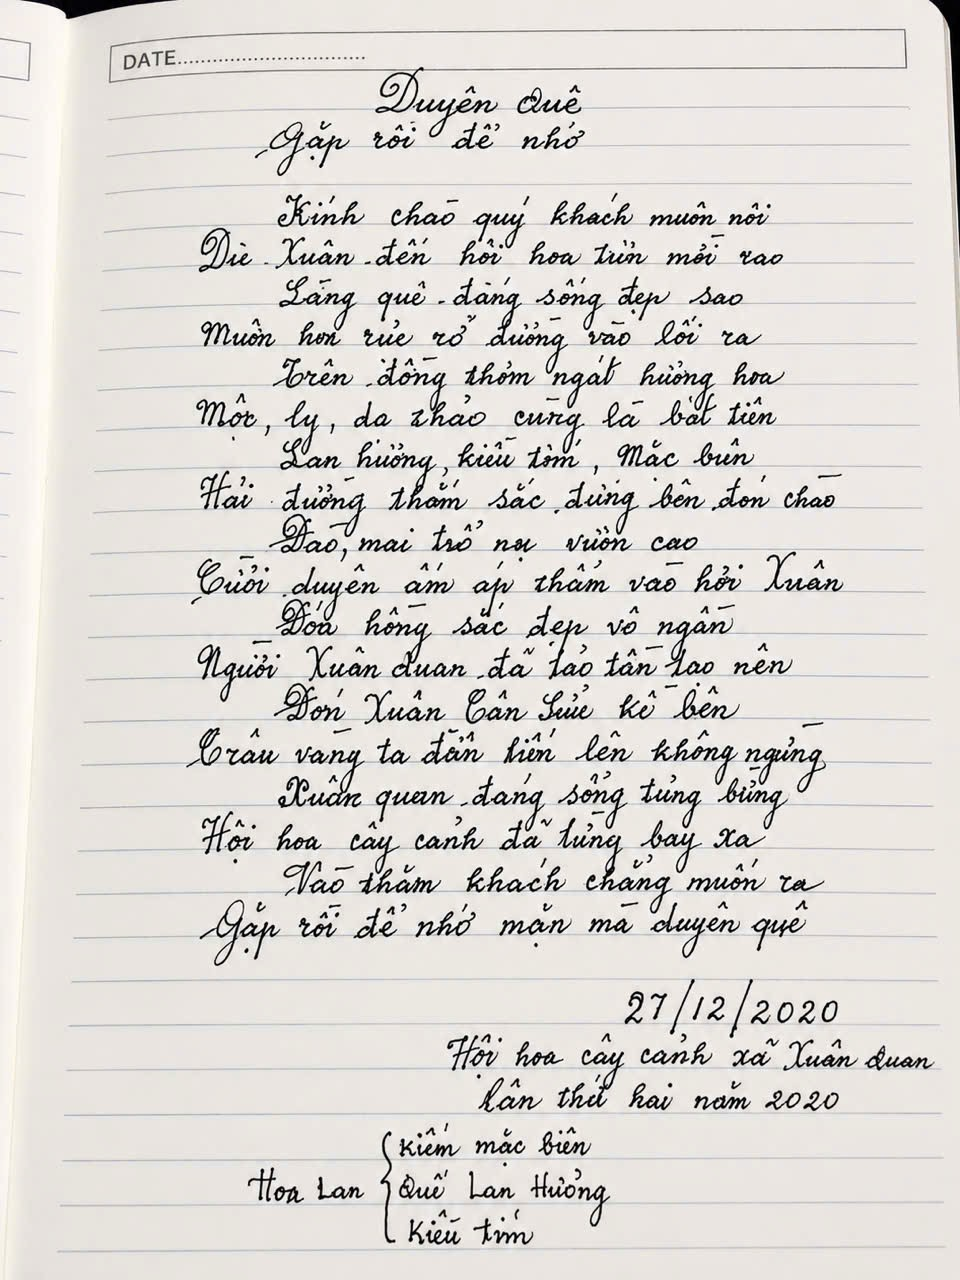 DATE
Duyên Quê
Gặp rồi để nhớ
Kính chào quý khách muôn nơi
Dìe Xuân đến hồi hoa tiın mới rao
Làng quê đáng sống đẹp sao
Muôn hoa rực rỡ đường vào lối ra
Trên đồng thơm ngát hương hoa
Mộc, ly, dạ thảo cùng là bát tiên
Lan hương, kiều tím, Mặc biên
Hải đường thắm sắc đứng bên đón chào
Đào, mai trổ nụ vườn cao
Cười duyên ấm áp thắm vào hơi Xuân
Đóa hồng sắc đẹp vô ngần
Người Xuân Quan đã tảo tần tạo nên
Đón Xuân Tân Sửu kề bên
Trâu vàng ta dấn tiến lên không ngừng
Xuân quan đáng sống tưng bừng
Hội hoa cây cảnh đã từng bay xa
Vào thăm khách chẳng muốn ra
Gặp rồi để nhớ mặn mà duyên quê
27/12/2020
Hội hoa cây cảnh xã Xuân Quan
lần thứ hai năm 2020
Kiếm mặc biên
Hoa Lan Quế Lan Hương
Kiều tím